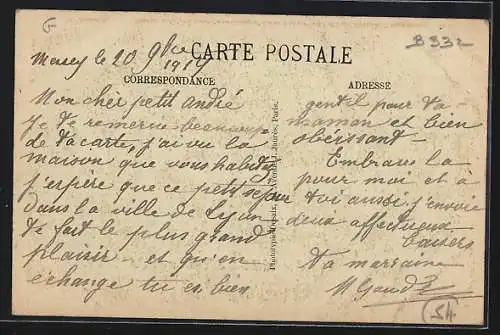 G
B 332
Mersey le 20 9bre 1919
CARTE POSTALE
CORRESPONDANCE
ADRESSE
Mon cher petit andré
Je te remercie beaucoup
de ta carte, j'ai vu la
maison que vous habitez
j'espire que ce petit sejour
dans la ville de Lyon
te fait le plus grand
plaisir et qu'en
échange tu es bien
gentil pour ta
maman et bien
obeissant -
Embrasse la
pour moi et à
toi aussi j'envoie
deux affectueux
baisers
ta marraine
M Gaud
54